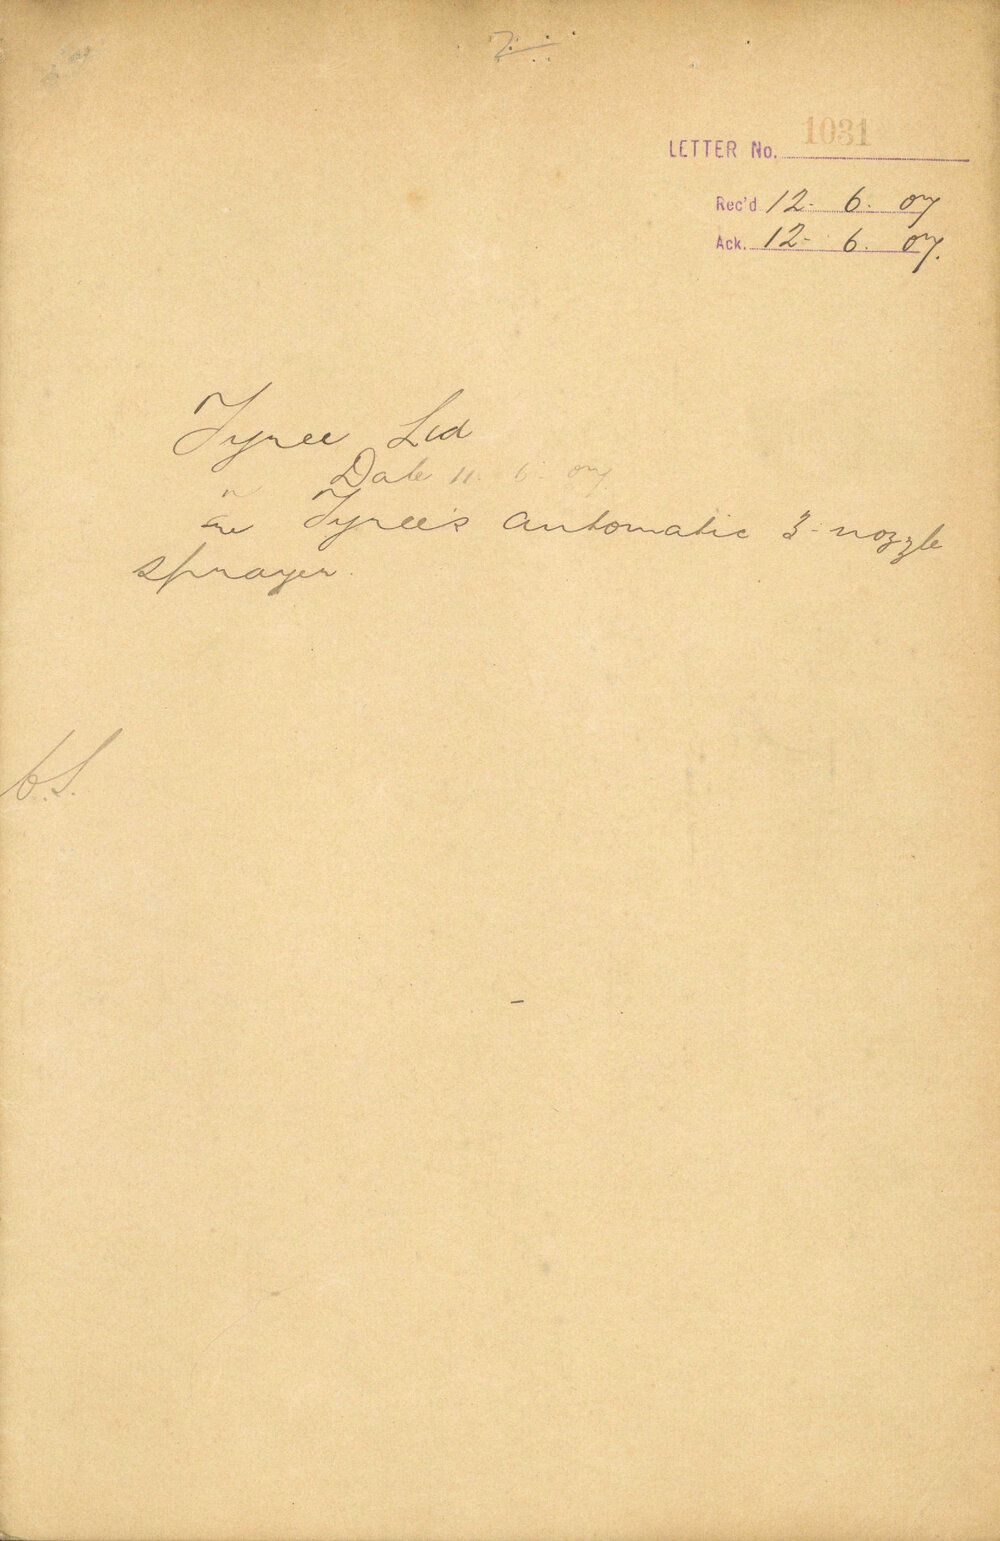 LETTER No. 1031
Rec'd 12. 6. 07
Ack. 12. 6. 07.
Tyree Ltd
Date 11. 6. 07
re Tyree's automatic 3-nozzle
sprayer.